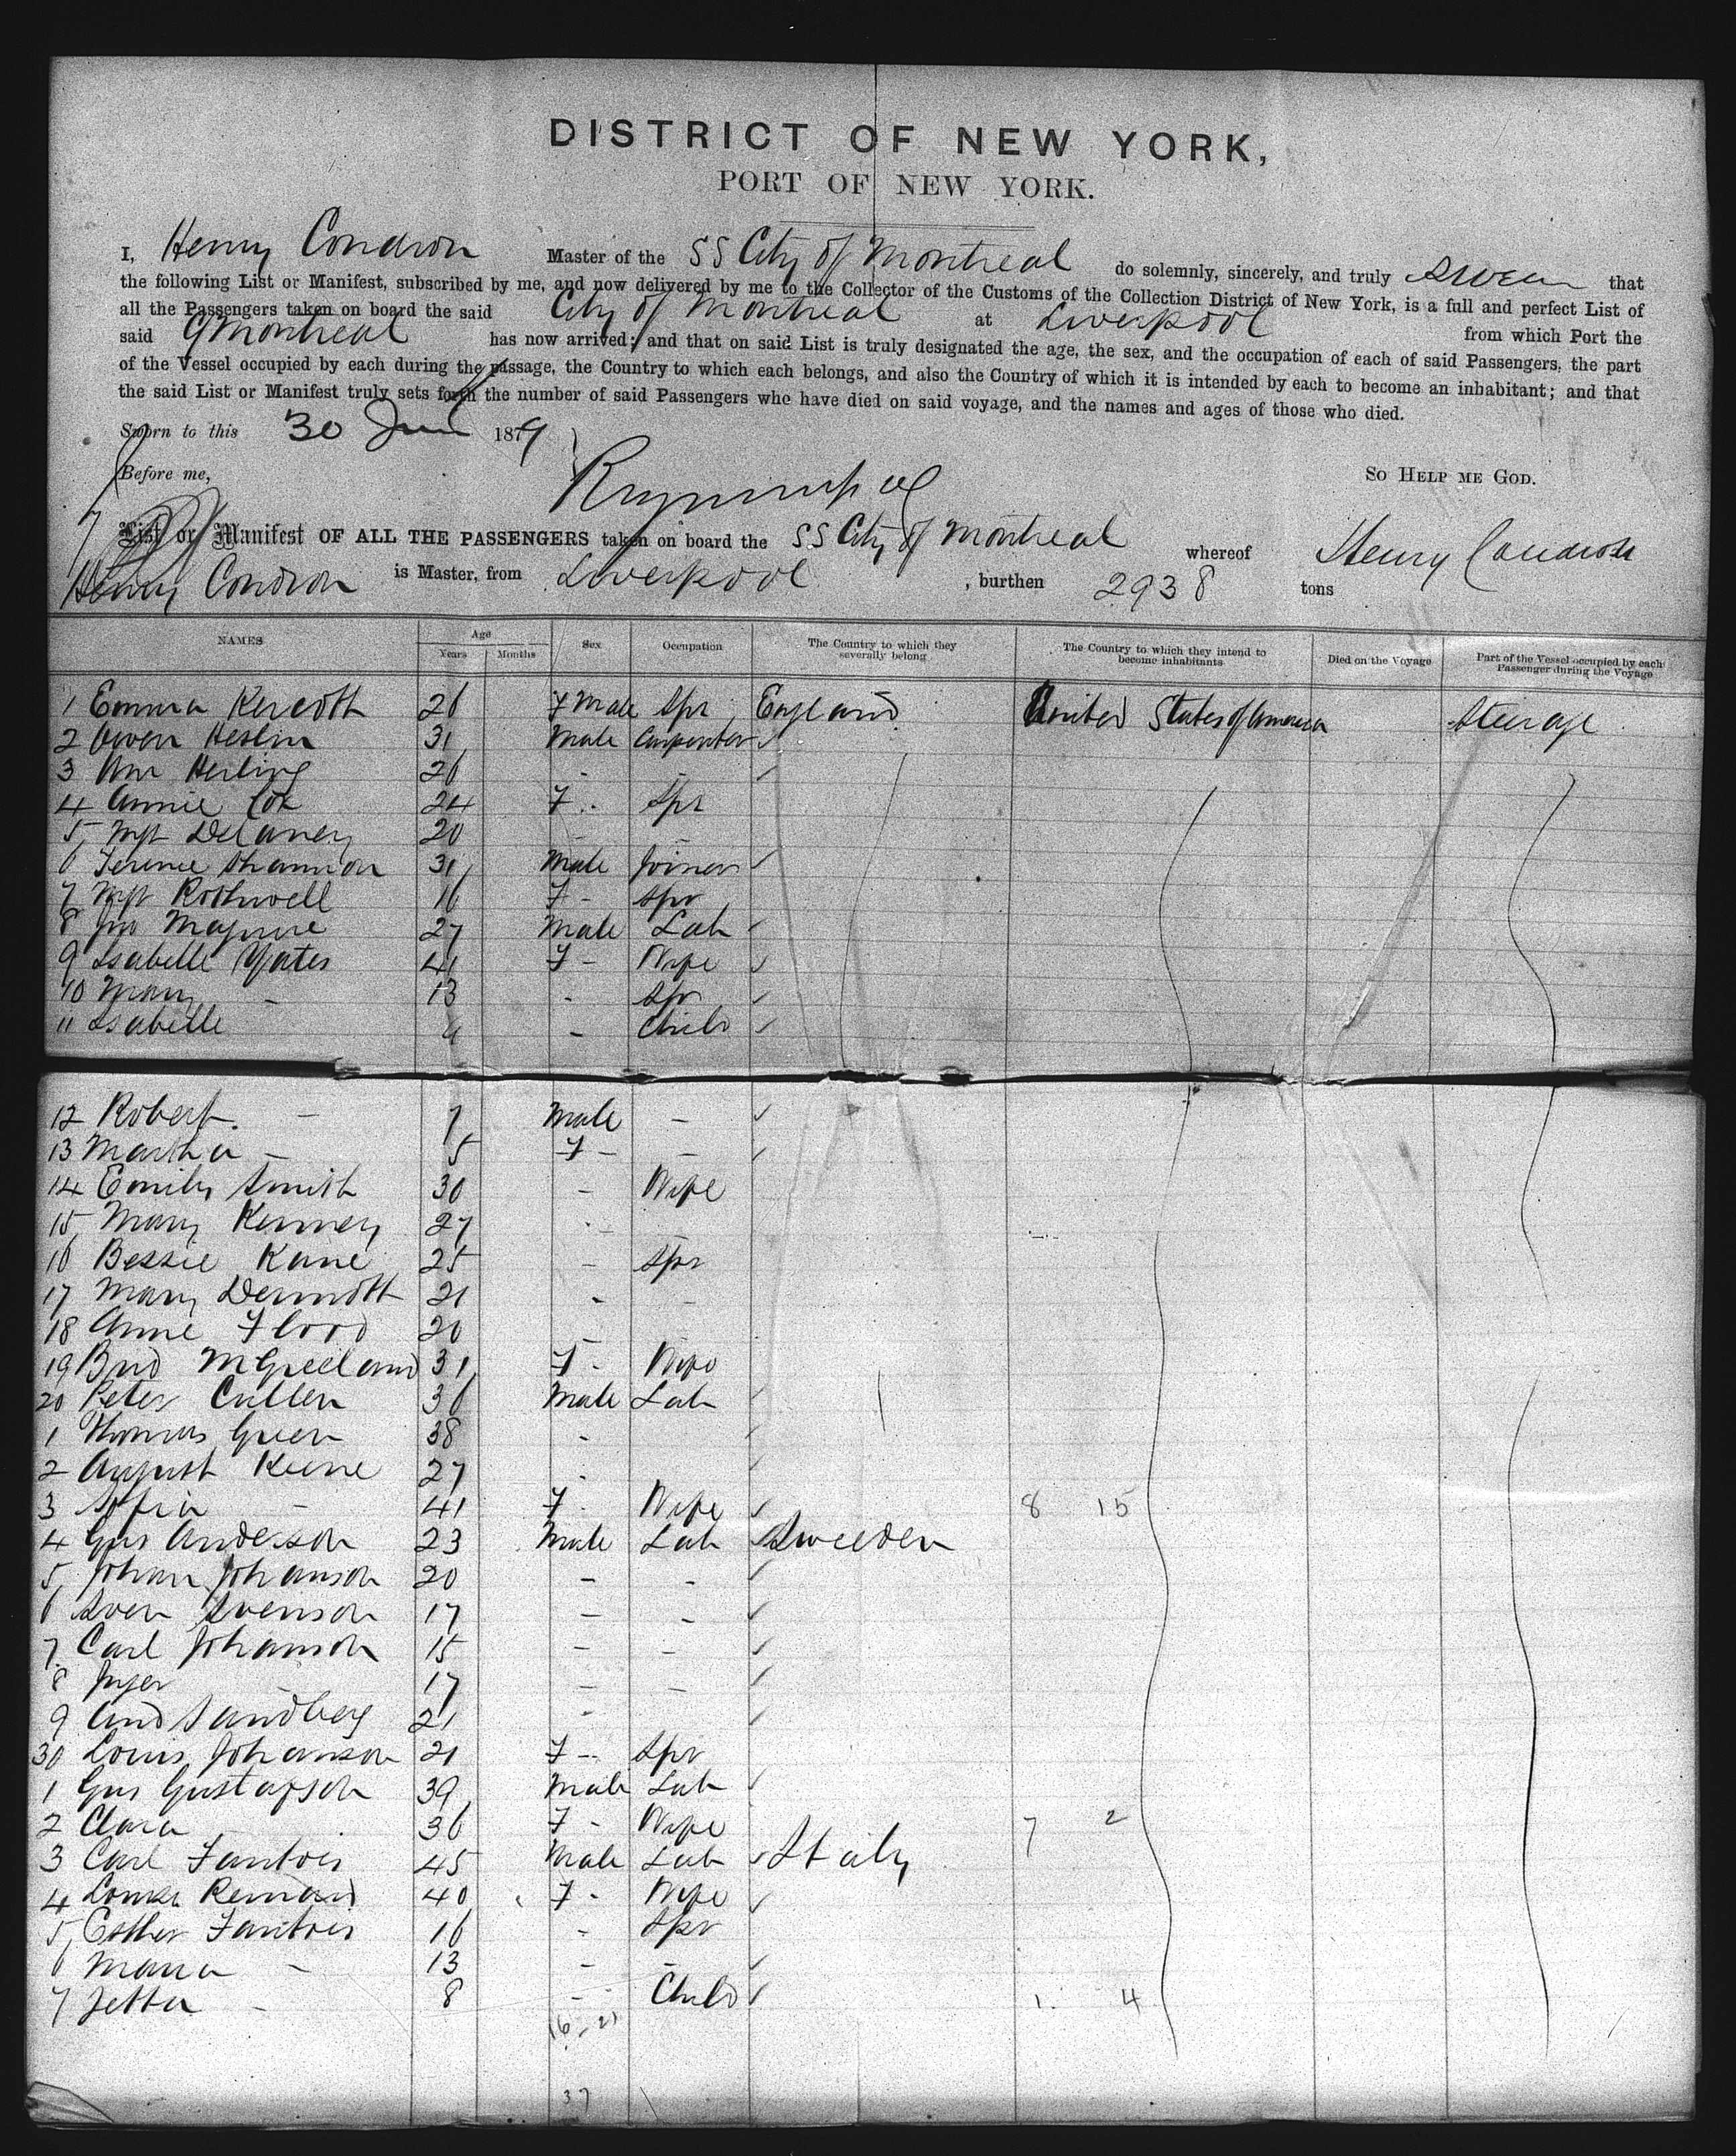 DISTRICT OF NEW YORK,
PORT OF NEW YORK.
I, Henry Condron Master of the SS City of Montreal do solemnly, sincerely, and truly swear that
the following List or Manifest, subscribed by me, and now delivered by me to the Collector of the Customs of the Collection District of New York, is a full and perfect List of
all the Passengers taken on board the said City of Montreal at Liverpool from which Port the
said Montreal has now arrived; and that on said List is truly designated the age, the sex, and the occupation of each of said Passengers, the part
of the Vessel occupied by each during the passage, the Country to which each belongs, and also the Country of which it is intended by each to become an inhabitant; and that
the said List or Manifest truly sets forth the number of said Passengers who have died on said voyage, and the names and ages of those who died.
Sworn to this 30 June 1879
Before me, SO HELP ME GOD.
List or Manifest OF ALL THE PASSENGERS taken on board the SS City of Montreal whereof Henry Condron
Henry Condron is Master, from Liverpool , burthen 2938 tons
NAMES Age Years Months Sex Occupation The Country to which they severally belong The Country to which they intend to become inhabitants Died on the Voyage Part of the Vessel occupied by each Passenger during the Voyage
1 Emma 26 F Male Spr England United States of America Steerage
2 Owen Heslin 31 Male Carpenter ✓
3 Ann Herling 26 - - ✓
4 Annie Cox 24 F - Spr
5 Mgt Delaney 20 - -
6 Terence Shannon 31 Male Joiner ✓
7 Mgt Rothwell 16 F - Spr
8 Jno Maguire 27 Male Lab ✓
9 Isabelle Yates 41 F - Wife ✓
10 Mary - 13 - Spr ✓
11 Isabelle - Child ✓
12 Robert - 7 Male - ✓
13 Martha - 5 F - - ✓
14 Emily Smith 30 - Wife
15 Mary Kenney 27 - -
16 Bessie Kane 25 - Spr
17 Mary Dermott 21 - -
18 Anne Flood 20 - -
19 Brid 31 F - Wife
20 Peter Cullen 36 Male Lab ✓
1 Thomas Green 38 - ✓
2 August Keene 27 - ✓
3 Sofia - 41 F - Wife ✓ 8 15
4 Gus Anderson 23 Male Lab ✓ Sweeden
5 Johan Johanson 20 - - ✓
6 Sven Svenson 17 - - ✓
7 Carl Johanson 15 - - ✓
8 Inger - 17 - - ✓
9 And Sandberg 21 - ✓
30 Louis Johanson 21 F - Spr
1 Gus Gustafson 39 Male Lab ✓
2 Clara 36 F - Wife 7 2
3 Carl Fantois 45 Male Lab ✓ Italy
4 40 F - Wife ✓
5 Esther Fantois 16 - Spr
6 Maria - 13 - - ✓
7 Jetta - 8 - Child ✓ 1 4
16 21
37